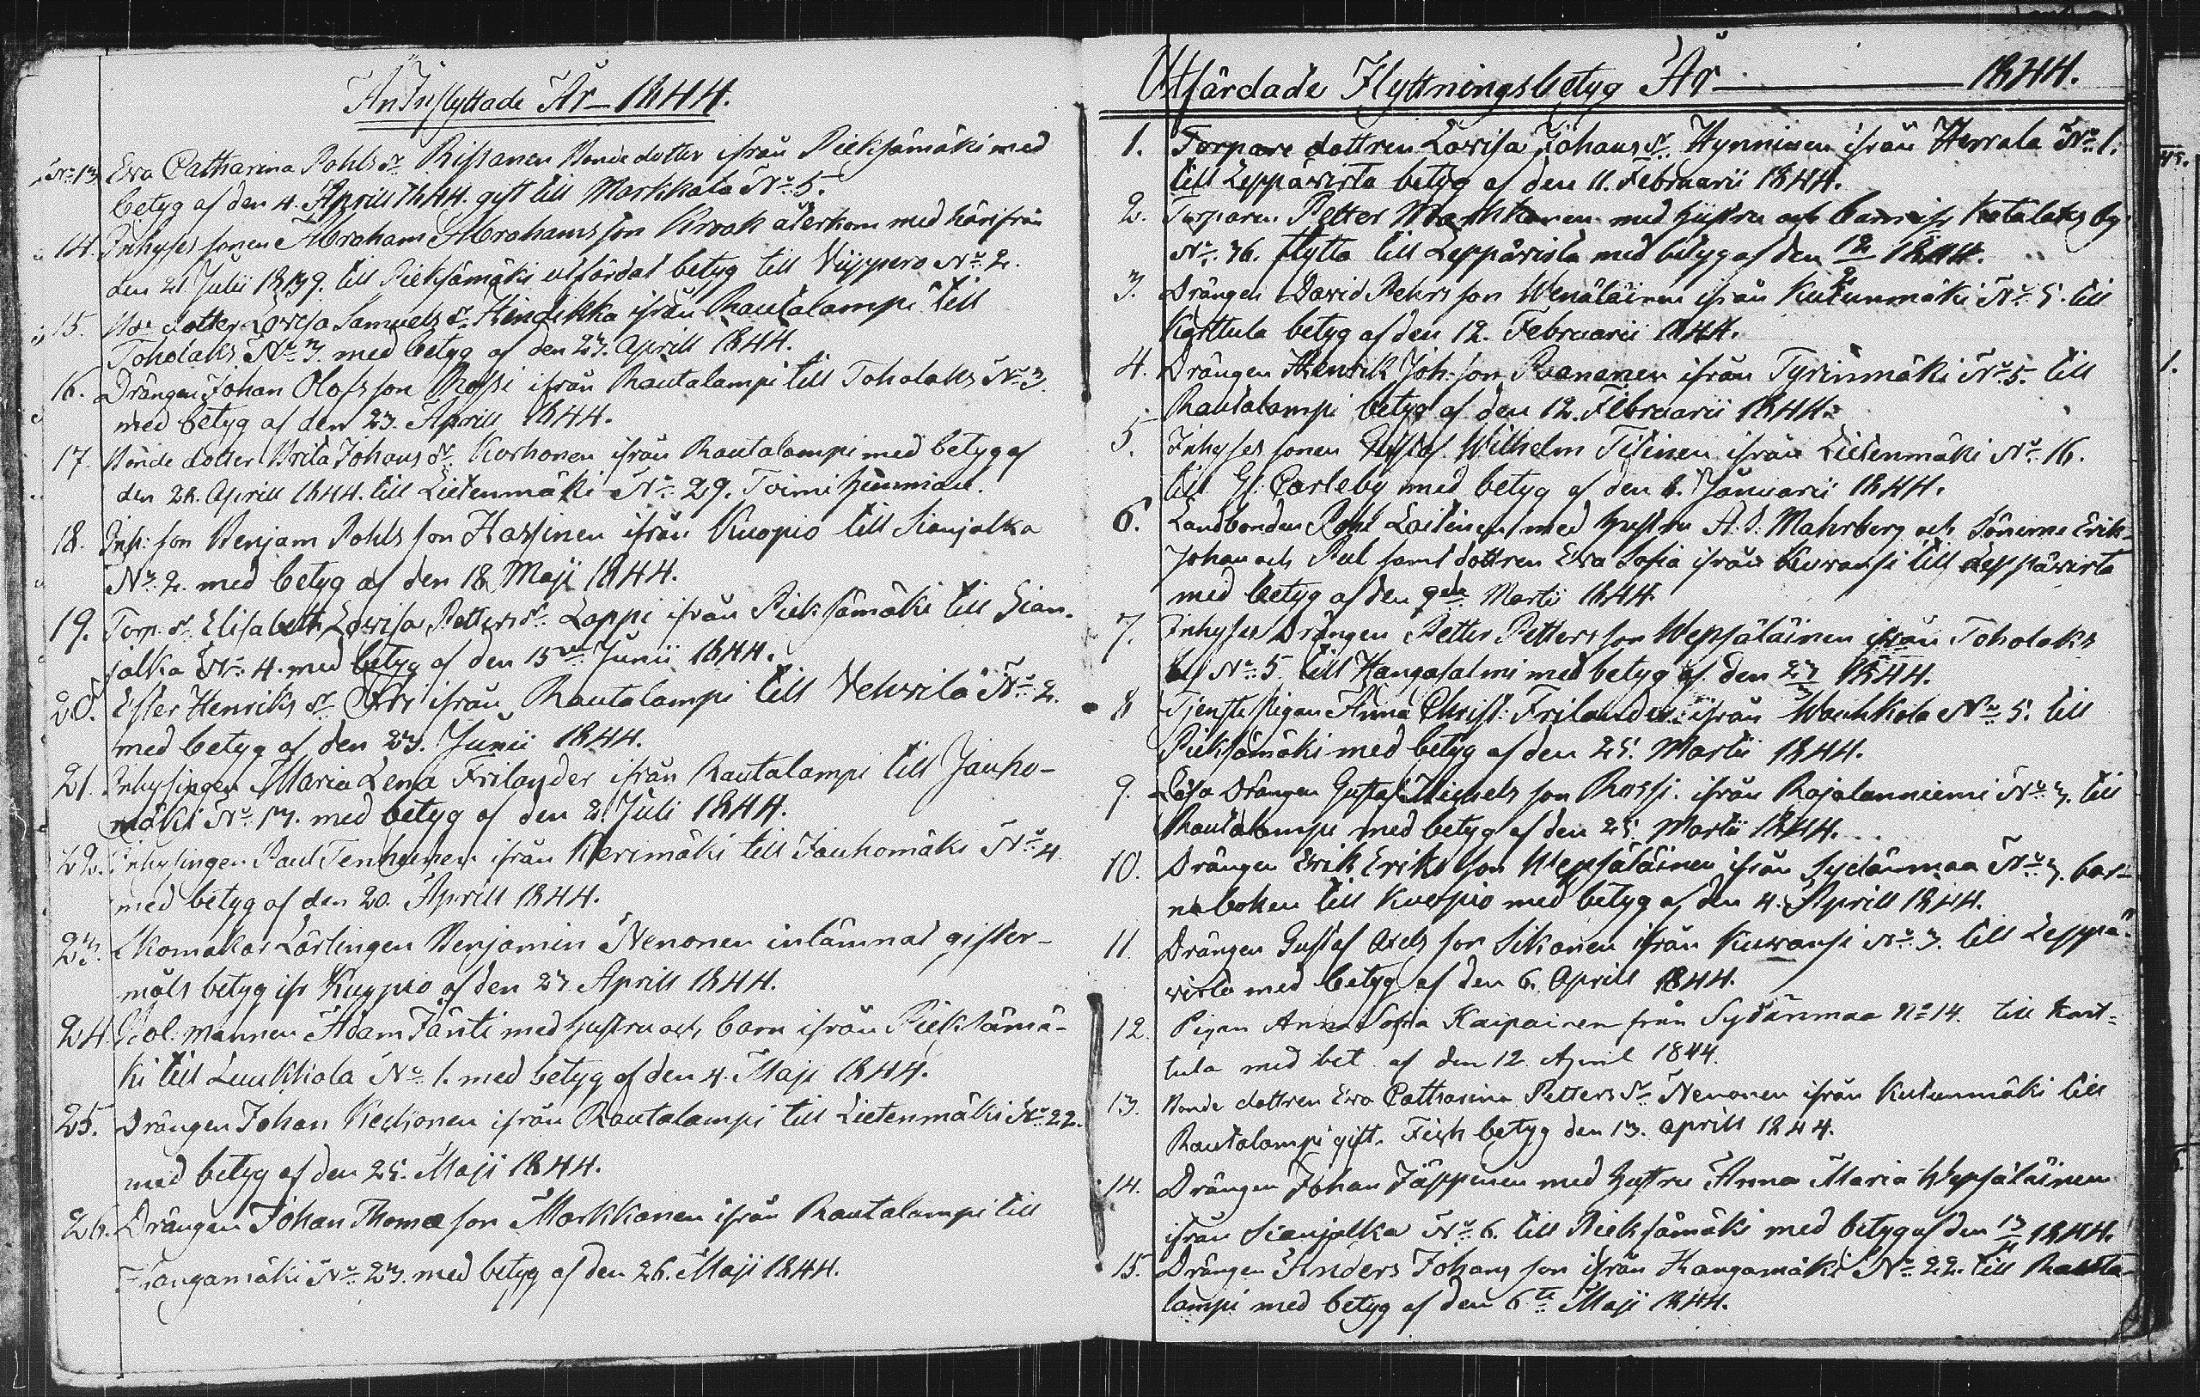 Inflyttade År 1844.
No 13. Ewa Catharina Pohls dr Rissanen Bondedotter ifrån Pieksämäki med
betyg af den 4. Aprill 1844. gift till Markkala No 5.
14. Inhyses sonen Abraham Abrahams son Kroak återkom med härifrån
den 21 Julii 1839. till Pieksämäki utfärdat betyg till Wippero No 2.
15. dotter Lovisa Samuels dr Hindikka ifrån Rautalampi till
Toholaks No 3. med betyg af den 23. Aprill 1844.
16. Drängen Johan Olofs son Rossi ifrån Rautalampi till Toholaks No 3.
med betyg af den 23. Aprill 1844.
17. Bonde dotter Brita Johans dr Korhonen ifrån Rautalampi med betyg af
den 28. Aprill 1844. till Lietenmäki No 29.
18. Inh: son Benjam Pohls son Hassinen ifrån Kuopio till Sianjalka
No 2. med betyg af den 18 Maji 1844.
19. Torp. dr Elisabeth Lovisa Petters dr Lappi ifrån Pieksämäki till Sian-
jalka No 4. med betyg af den 15 Junii 1844.
20. Ester Henriks dr ifrån Rautalampi till Vehvilä No 2.
med betyg af den 23. Junii 1844.
21. Inhysingen Maria Lena Frilander ifrån Rautalampi till Jauho-
mäki No 13. med betyg af den 2 Juli 1844.
22. Inhysingen Paul Tenhunen ifrån Kerimäki till Jauhomäki No 4
med betyg af den 20. Aprill 1844.
23. Skomakar Lärlingen Benjamin Nenonen inlämnat gifter-
måls betyg ifr Kuopio af den 23 Aprill 1844.
24. mannen Adam Jänti med hustru och barn ifrån Pieksämä-
ki till Luukkola No 1. med betyg af den 4. Maji 1844.
25. Drängen Johan Kechonen ifrån Rautalampi till Lietenmäki No 22.
med betyg af den 25. Maji 1844.
26. Drängen Johan Thomæ son Markkanen ifrån Rautalampi till
Kangamäki No 23. med betyg af den 26. Maji 1844.
Utfärdade Flyttningsbetyg År 1844.
1. Torpare dottren Lovisa Johans dr Hynninen ifrån Herrala No 1.
till Leppävirta betyg af den 11. Februarii 1844.
2. Torparen Petter Markkanen med hustru och barn ifr Katalaks by
No 36. flytta till Leppävirta med betyg af den 12/2 1844.
3. Drängen David Pehrs son Wenäläinen ifrån Kutunmäki No 5. till
Karttula betyg af den 12. Februarii 1844.
4. Drängen Henrik Joh: son Ranen ifrån Tyrinmäki No 5. till
Rautalampi betyg af den 12. Februarii 1844.
5. Inhyses sonen Gustaf Wilhelm Titinen ifrån Lietenmäki No 16.
till Gl: Carleby med betyg af den 8. Januarii 1844.
6. Landbonden Pohl Laitinen med hustru A. S. Mahrberg och Sönerne Erik-
Johan och Pal samt dottren Ewa Sofia ifrån Kuvansi till Leppävirta
med betyg af den 9de Martii 1844.
7. Inhyses Drängen Petter Petters son Wepsäläinen ifrån Toholaks
No 5. till Kangasalmi med betyg af den 23/3 1844.
8 Tjenstepigan Anna Christ: Frilander ifrån Markkala No 5. till
Pieksämäki med betyg af den 25. Martii 1844.
9. Drängen Gustaf Michels son Rossi ifrån Rajalanniemi No 3. till
Rautalampi med betyg af den 25. Martii 1844.
10. Drängen Erik Eriks son Wepsäläinen ifrån Sydänmaa No 3. bar-
neboken till Kuopio med betyg af den 4. Aprill 1844.
11. Drängen Gustaf Axels son Sikanen ifrån Kuwansi No 3. till Leppä-
virta med betyg af den 6. Aprill 1844.
12. Pigan Anna Sofia Kaipainen från Sydänmaa No 14. till Kart-
tula med bet. af den 12. April 1844.
13. Bonde dottren Ewa Catharina Petters dr Nenonen ifrån Kutunmäki till
Rautalampi gift. betyg den 13. aprill 1844.
14. Drängen Johan Jäppinen med hustru Anna Maria Wepsäläinen
ifrån Sianjalka No 6. till Pieksämäki med betyg af den 13/4 1844.
15. Drängen Anders Johans son ifrån Kangamäki No 22. till Rauta-
lampi med betyg af den 6te Maji 1844.